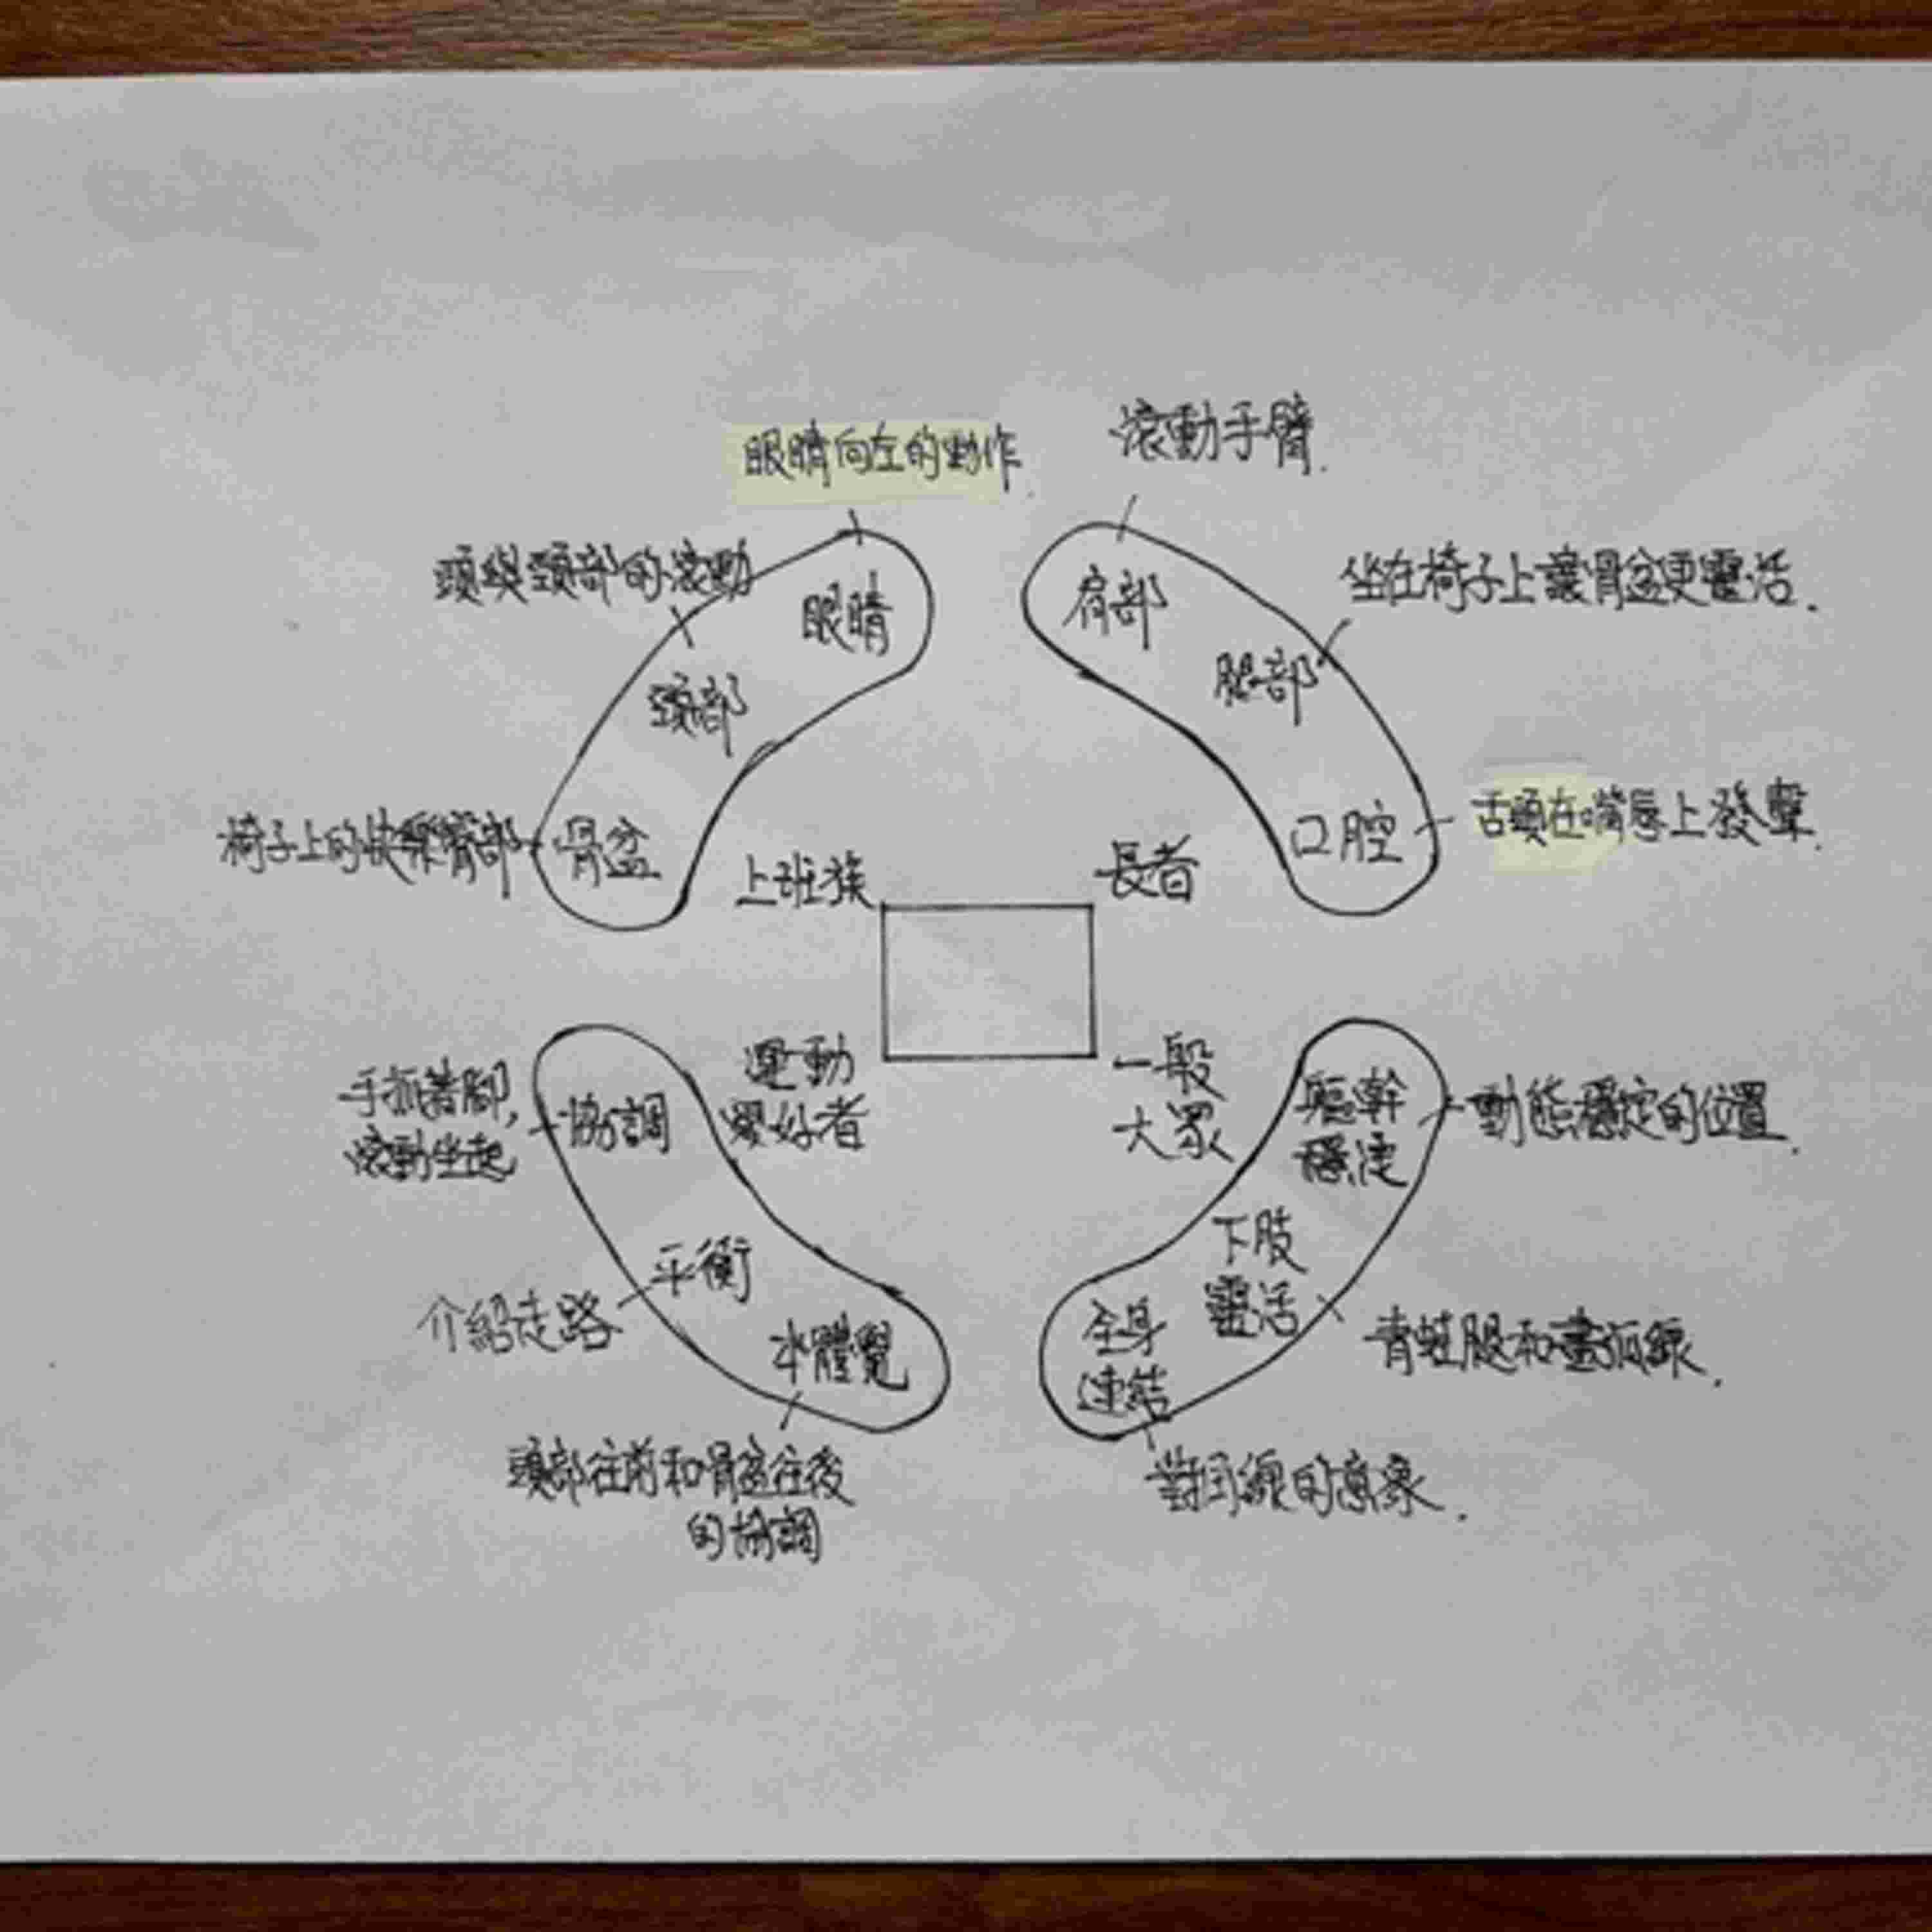 眼睛向左的動作
滾動手臂.
頭與頸部的滾動
坐在椅子上讓骨盆更靈活.
眼睛
肩部
頸部
腿部
椅子上的快樂臀部
骨盆
口腔
舌頭在嘴唇上發聲.
上班族
長者
運動
愛好者
一般
大眾
手抓著腳,
滾動坐起
協調
平衡
本體覺
介紹走路
頭部往前和骨盆往後
的協調
軀幹
穩定
動態穩定的位置.
下肢
靈活
青蛙腿和畫弧線.
全身
連結
對角線的意象.